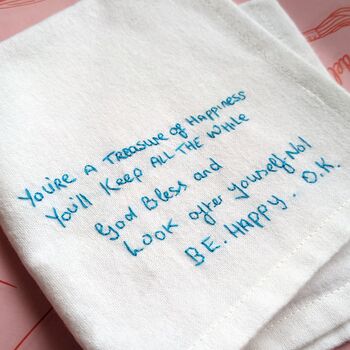 You're A Treasure of Happiness
You'll Keep ALL THE While
God Bless and
Look after yourself No1
BE. HAPPY. O.K.